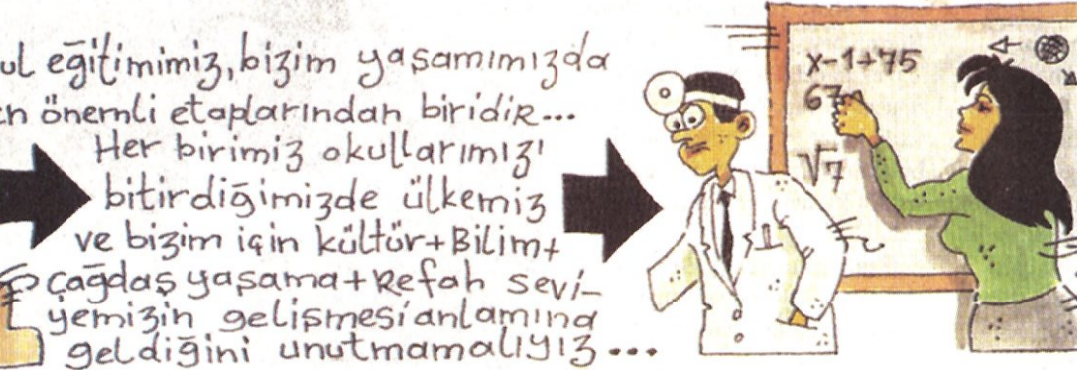 ul eğitimimiz, bizim yaşamımızda
en önemli etaplarından biridir...
Her birimiz okullarımızı
bitirdiğimizde ülkemiz
ve bizim için kültür+Bilim+
çağdaş yaşama+Refah sevi-
yemizin gelişmesi anlamına
geldiğini unutmamalıyız...
x-1+75
67
√7